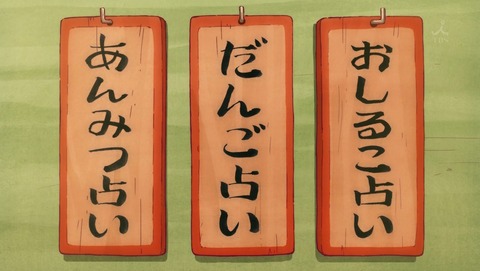 おしるこ占い
だんご占い
あんみつ占い